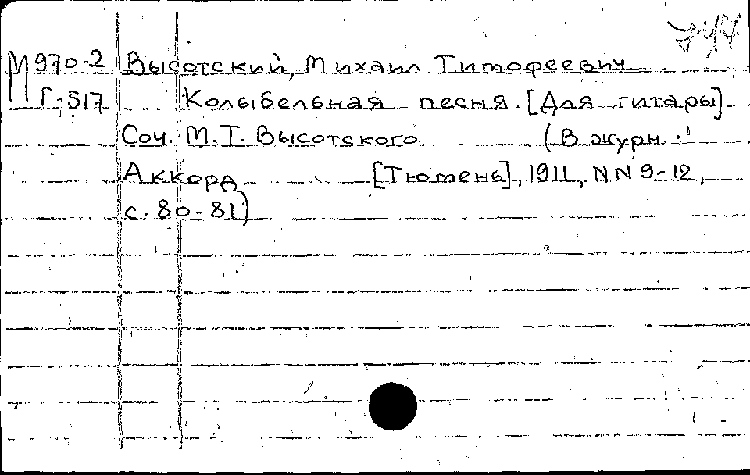 М 970-2 Высотский, Михаил Тимофеевич
Г-517 Колыбельная песня. [Для гитары].
Соч. М.Т. Высотского (В журн.:
Аккорд [Тюмень], 1911, NN 9-12,
с. 80-81)